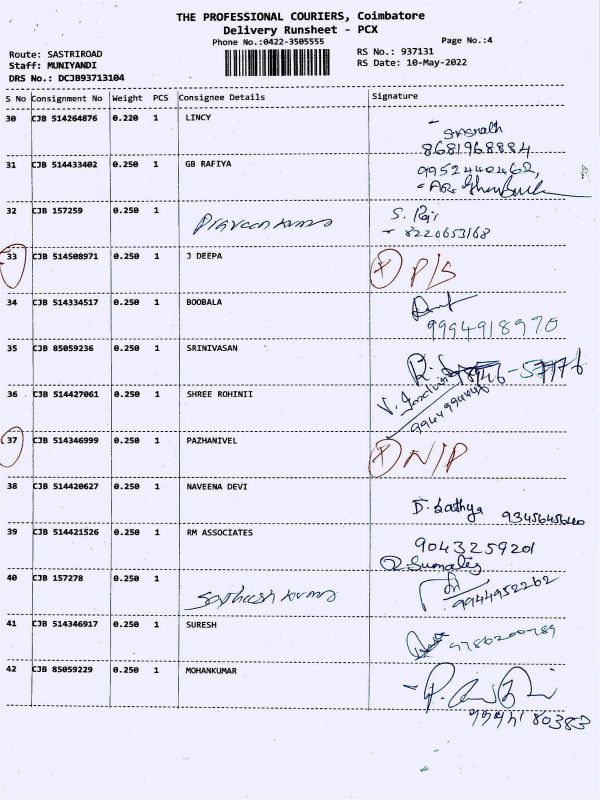 THE PROFESSIONAL COURIERS, Coimbatore
Delivery Runsheet - PCX
Phone No.:0422-3505555
Page No.:4
Route: SASTRIROAD
RS No.: 937131
Staff: MUNIYANDI
RS Date: 10-May-2022
DRS No.: DCJB93713104
S No Consignment No Weight PCS Consignee Details Signature
30 CJB 514264876 0.220 1 LINCY
8681968884
31 CJB 514433402 0.250 1 GB RAFIYA
9952440462,
32 CJB 157259 0.250 1 Praveen kumar S. Raji
8220653168
33 CJB 514508971 0.250 1 J DEEPA P/S
34 CJB 514334517 0.250 1 BOOBALA
9994918970
35 CJB 85059236 0.250 1 SRINIVASAN
36 CJB 514427061 0.250 1 SHREE ROHINII
37 CJB 514346999 0.250 1 PAZHANIVEL N/P
38 CJB 514420627 0.250 1 NAVEENA DEVI
D. Sathya 9345645640
39 CJB 514421526 0.250 1 RM ASSOCIATES
9043259201
40 CJB 157278 0.250 1 Satheesh kumar
9944952262
41 CJB 514346917 0.250 1 SURESH
9786200789
42 CJB 85059229 0.250 1 MOHANKUMAR
9994180383